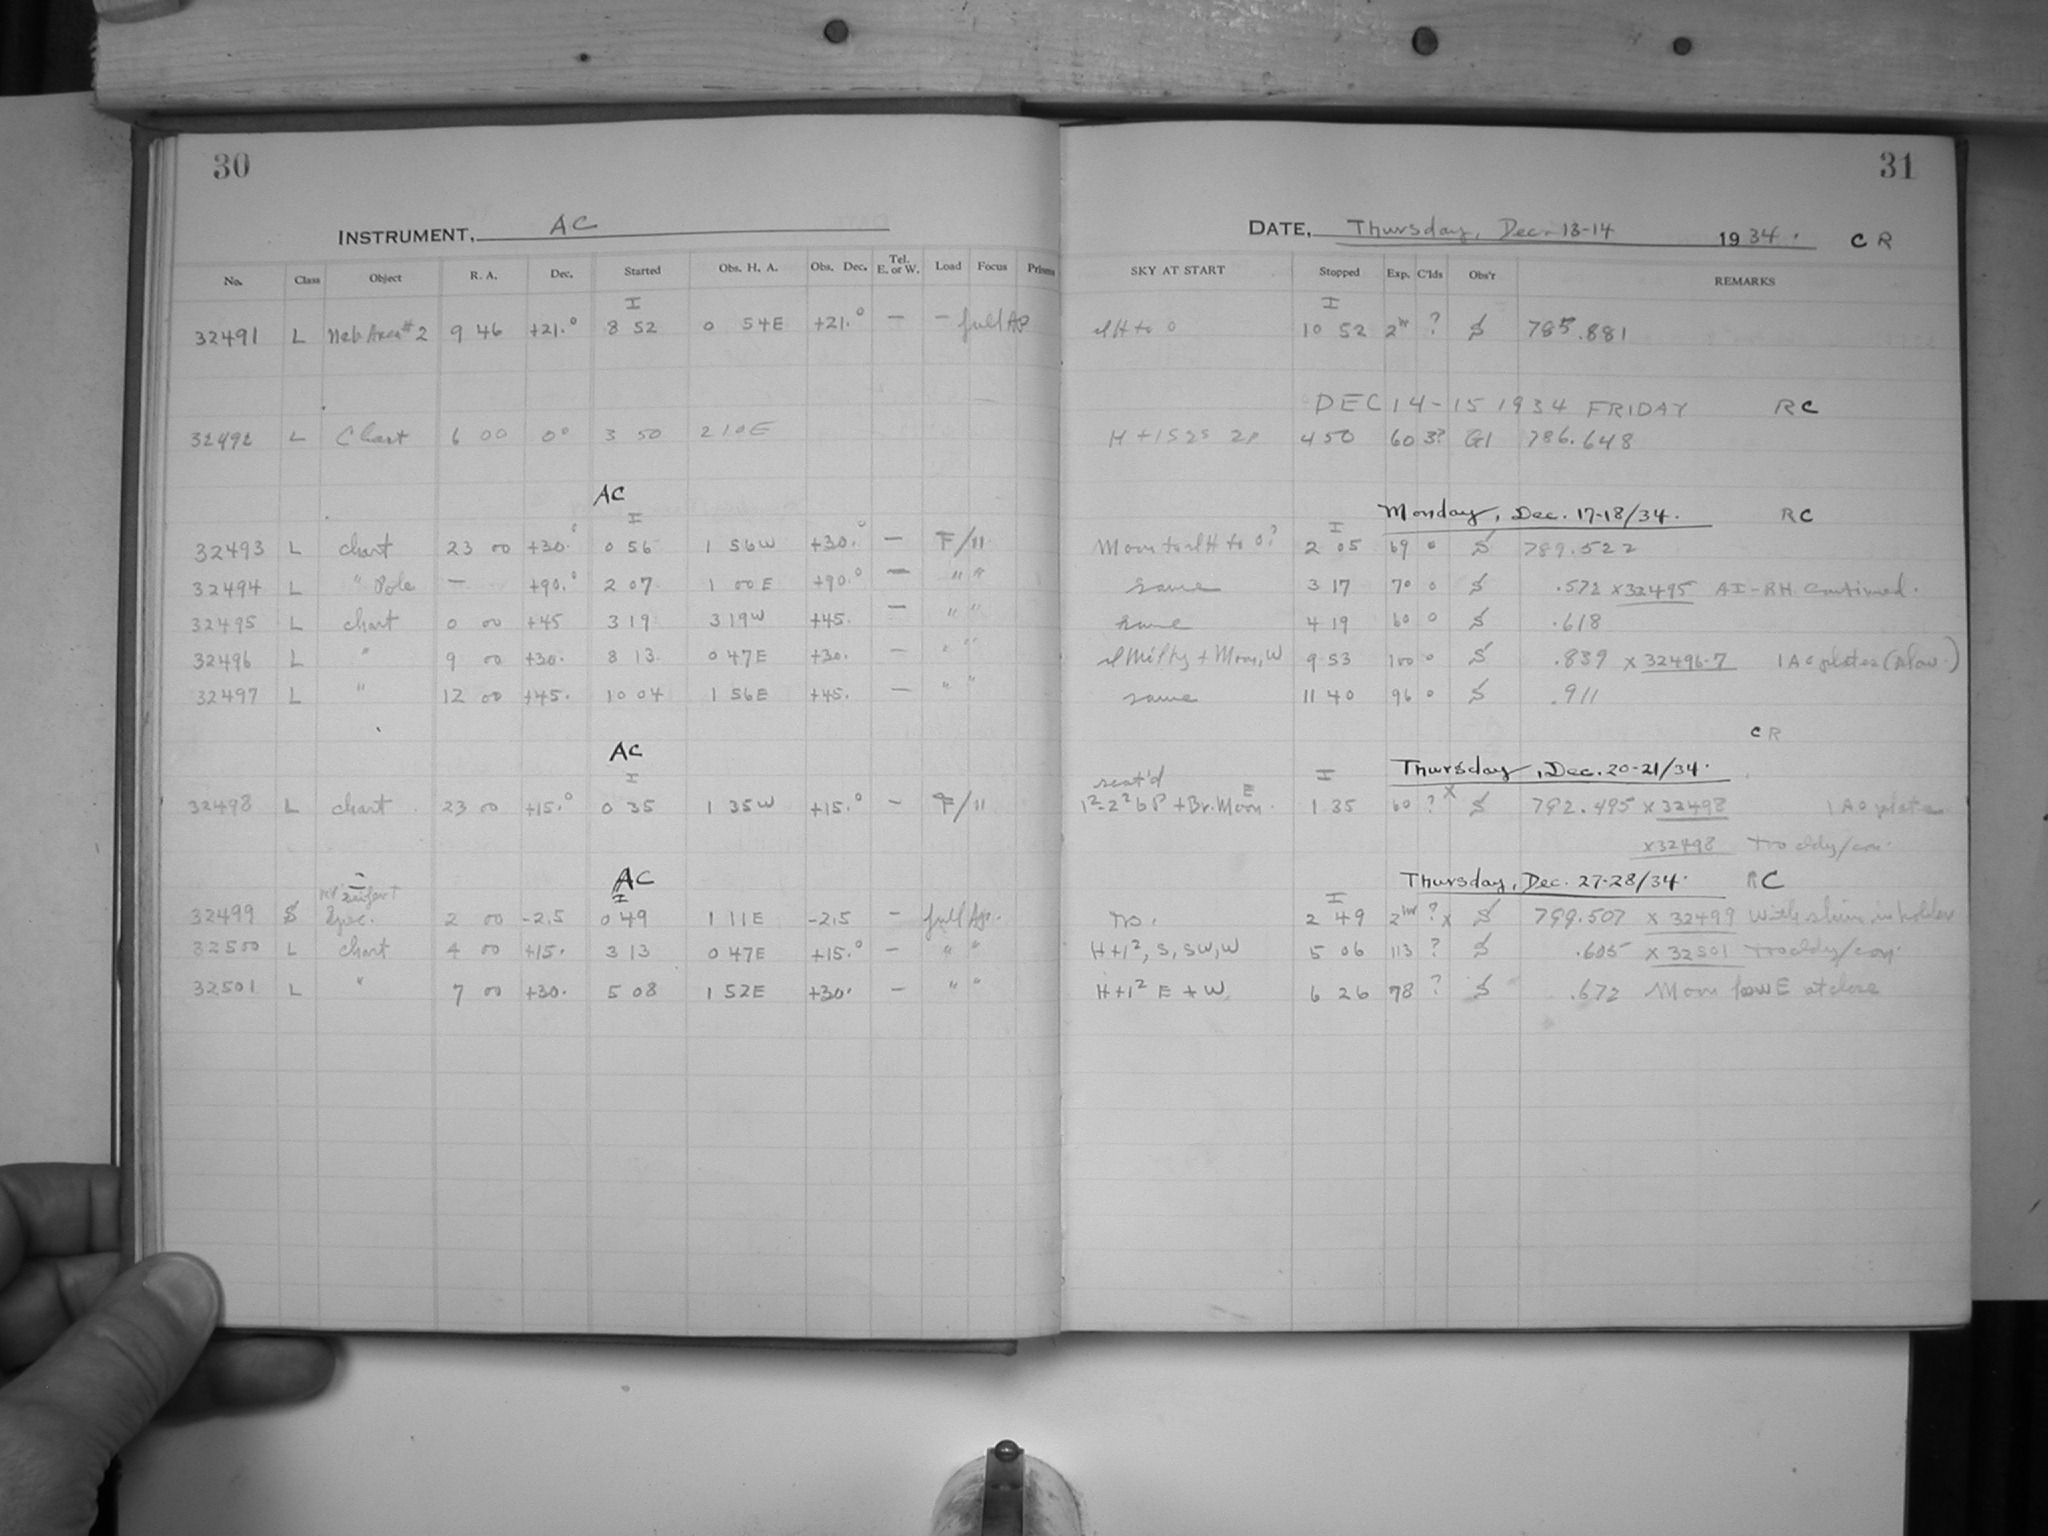 30
INSTRUMENT, AC
No. Class Object R. A. Dec. Started Obs. H. A. Obs. Dec. Tel. E. or W. Load Focus Prisms
I
32491 L Neb Area #2 9 46 +21.° 8 52 0 54E +21.° — — full Ap
32492 L Chart 6 00 0° 3 50 2 10E
AC
I
32493 L chart 23 00 +30.° 0 56 1 56W +30.° — F/11
32494 L " Pole — +90.° 2 07 1 00 E +90.° — " "
32495 L chart 0 00 +45 3 19 3 19W +45. — " "
32496 L " 9 00 +30. 8 13. 0 47E +30. — " "
32497 L " 12 00 +45. 10 04 1 56E +45. — " "
AC
I
32498 L chart 23 00 +15.° 0 35 1 35W +15.° — F/11
AC
I
32499 S Spec. 2 00 -2.5 0 49 1 11E -2.5 — full Ap.
32500 L chart 4 00 +15. 3 13 0 47E +15.° — " "
32501 L " 7 00 +30. 5 08 1 52E +30. — " "
31
DATE, Thursday, Dec. 13-14 1934. CR
SKY AT START Stopped Exp. C'lds Obs'r REMARKS
I
H to 0 10 52 2hr ? S 785.881
DEC 14-15 1934 FRIDAY RC
H + 1S 2S 2P 4 50 60 3? GI 786.648
Monday, Dec. 17-18/34. RC
I
Moon to H to 0? 2 05 69 0 S 789.522
same 3 17 70 0 S .572 x32495 AI-RH Continued.
same 4 19 60 0 S .618
Milky + Moon, W 9 53 100 0 S .839 x 32496-7 1 AC plates (slow.)
same 11 40 96 0 S .911
CR
Thursday, Dec. 20-21/34.
scat'd I
1²-2² bP + Br. Moon. E 1 35 60 ? x S 792.495 x 32498 1 AC plates
x32498
Thursday, Dec. 27-28/34. RC
I
2 49 2hr ? x S 799.507 x 32499 with shim in holder
H+1², S, SW, W 5 06 113 ? S .605 x 32501
H+1² E + W 6 26 78 ? S .672 Moon low E at close